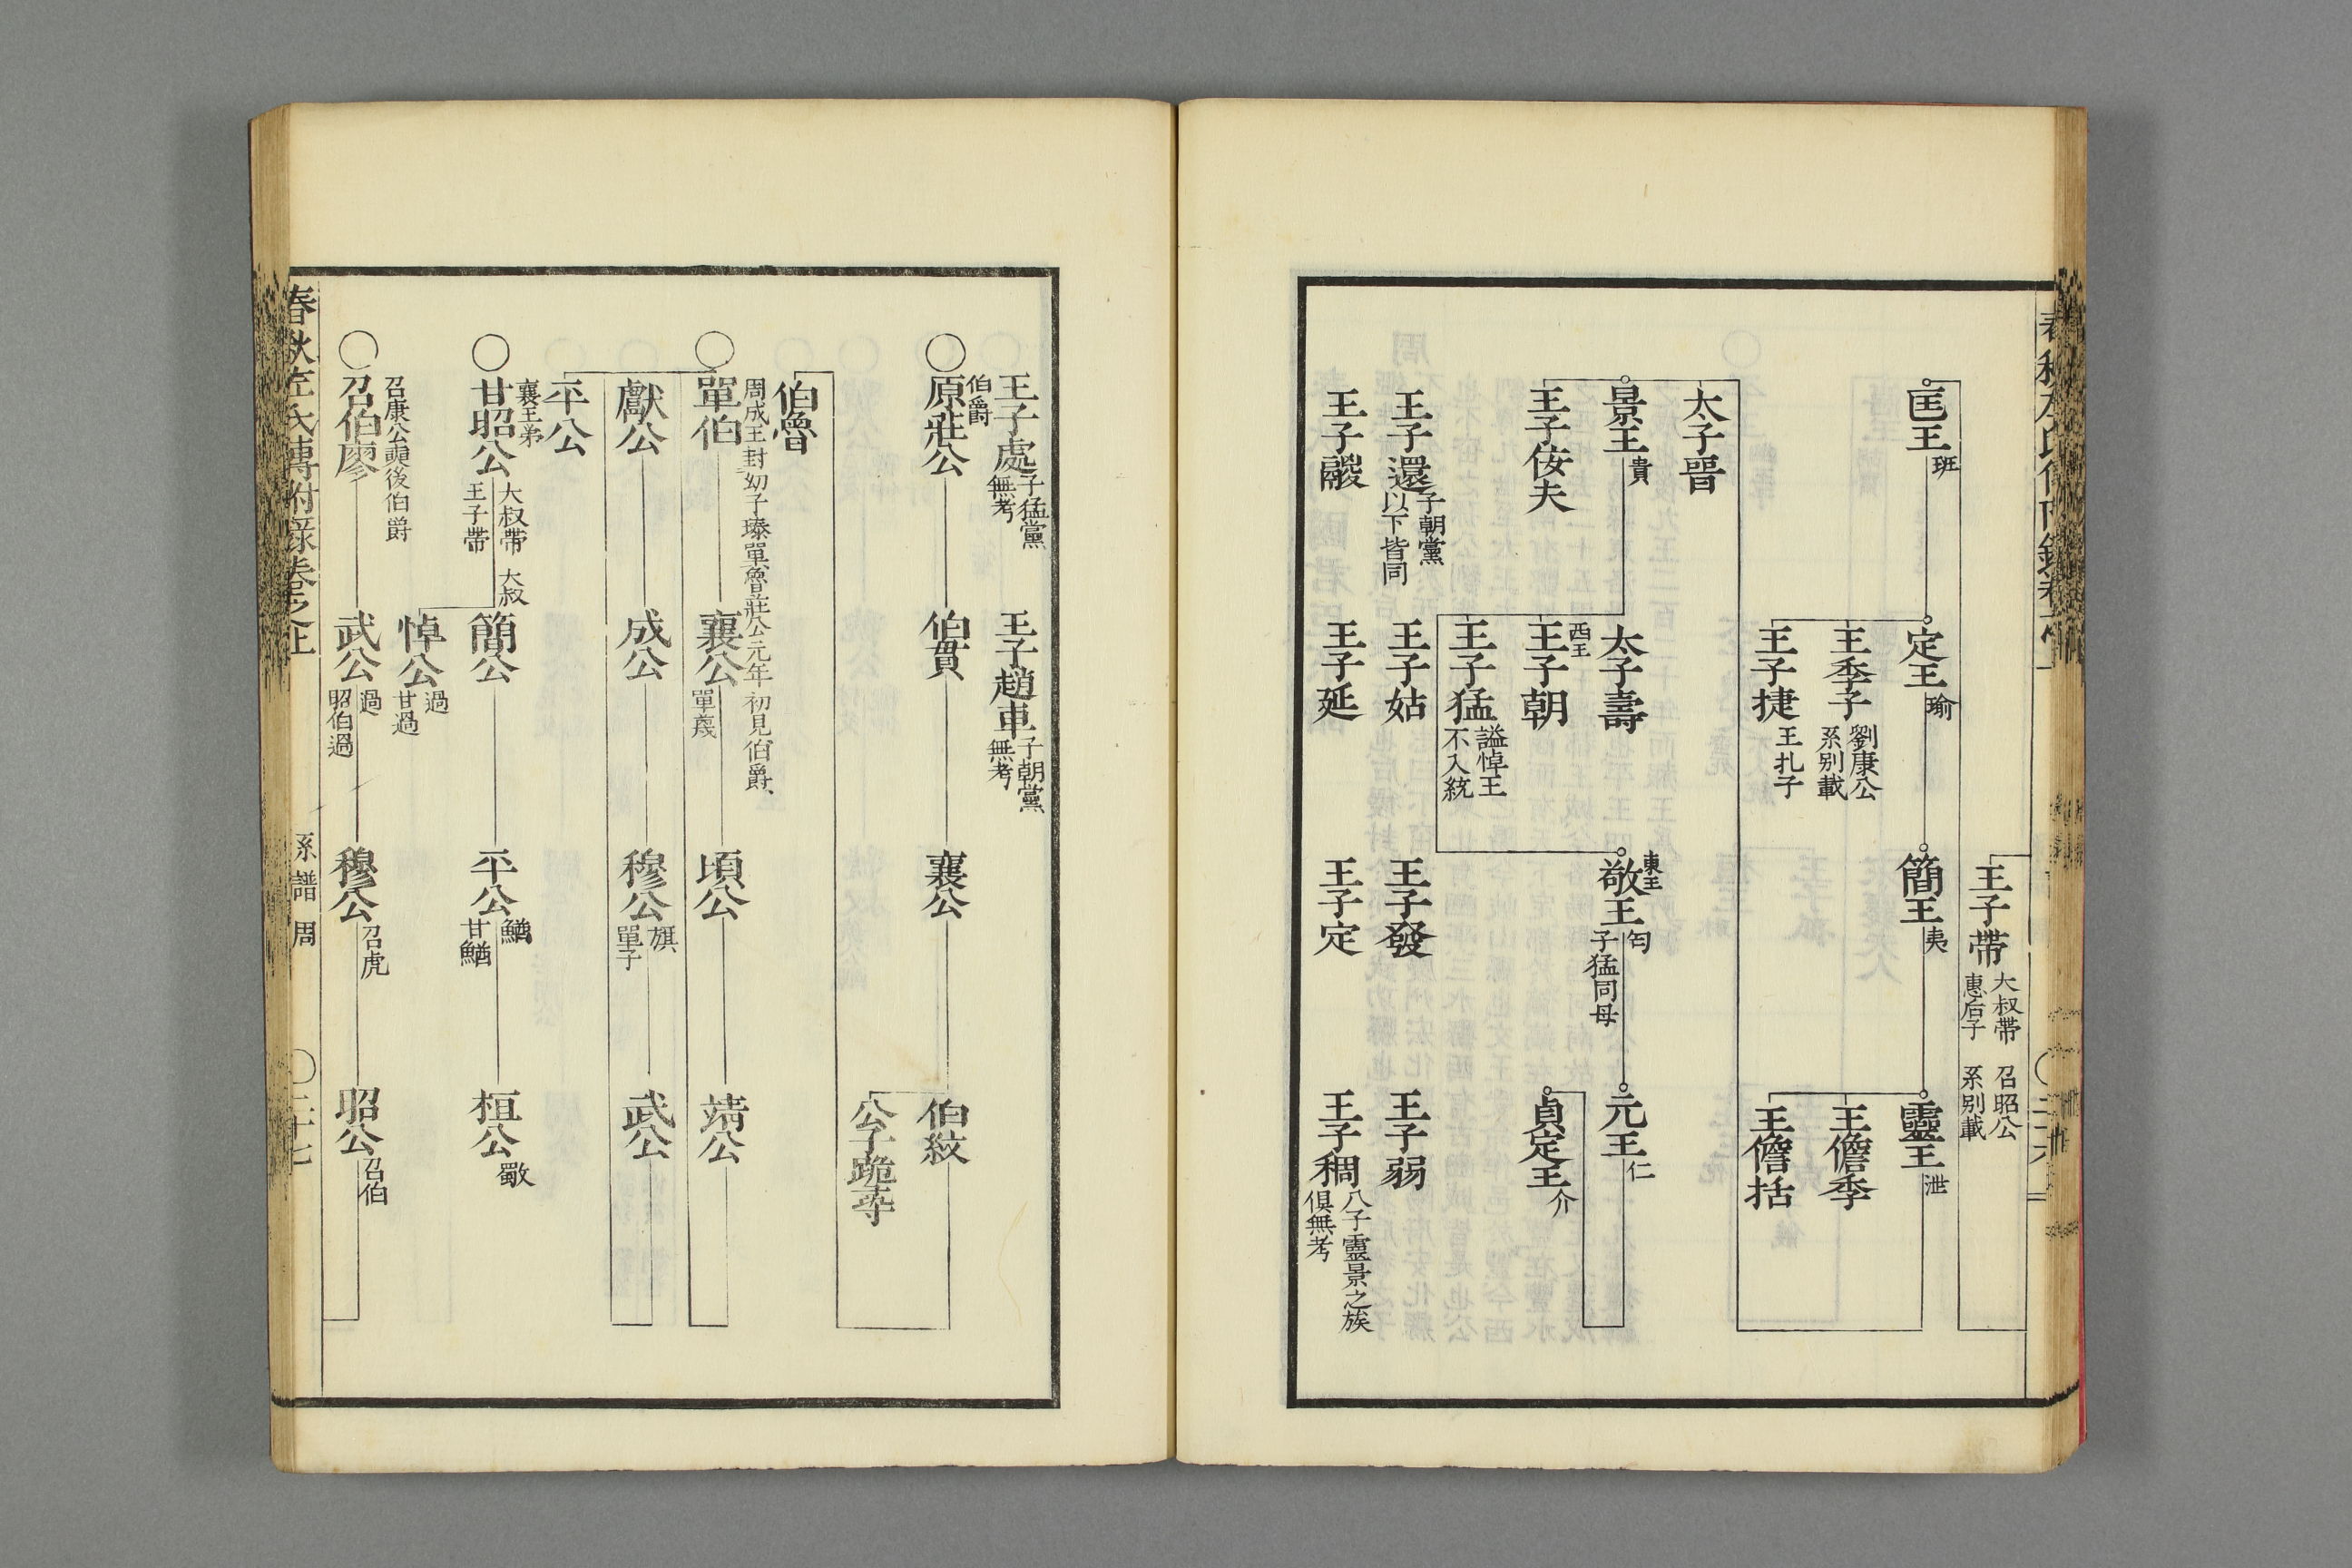 王子帶 大叔帶 召昭公
惠后子 系別載
匡王班
定王瑜
簡王夷
靈王泄
王季子 劉康公
系別載
王儋季
王子捷 王札子
王儋括
太子晉
景王貴
太子壽
東王
敬王匄
子猛同母
元王仁
王子佞夫
西王
王子朝
貞定王介
王子猛 謚悼王
不入統
王子還 子朝黨
以下皆同
王子姑
王子發
王子弱
王子鬷
王子延
王子定
王子稠 八子靈景之族
俱無考
王子處 子猛黨
無考
王子趙車 子朝黨
無考
伯爵
○原莊公
伯貫
襄公
伯絞
公子跪尋
伯魯
周成王封幼子瑧單魯莊公元年初見伯爵
○單伯
襄公 單襄
頃公
靖公
獻公
成公
穆公 旗
單子
武公
平公
襄王弟
○甘昭公 大叔帶 大叔
王子帶
簡公
平公 鰌
甘鰌
桓公
悼公 過
甘過
召康公奭後伯爵
○召伯廖
武公 過
昭伯過
穆公 召虎
昭公 召伯
春秋左氏傳附錄卷之上
系譜 周
○二十七